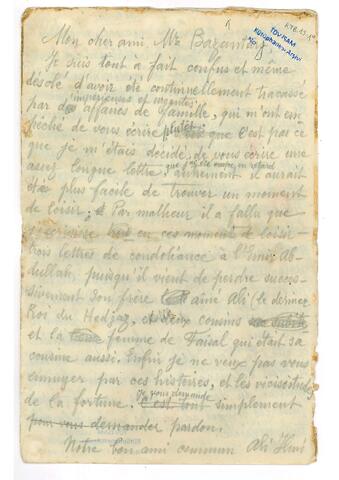 Mon cher ami, Mr Bazantay,
TOVRAM
Je suis tout à fait confus et même
désolé d'avoir été continuellement tracassé
impérieuses et urgentes
par des affaires de famille, qui m'ont em-
pêché de vous écrire plutôt. C'est pas ce
que je m'étais décidé de vous écrire une
assez longue lettre, autrement il aurait
été plus facile de trouver un moment
de loisir. Par malheur il a fallu que
en ces moments de loisir
trois lettres de condoléance à l'Emir Ab-
dullah, puisqu'il vient de perdre succes-
sivement son frère ainé Ali le dernier
Roi du Hedjaz, et deux cousins
et la femme de Faisal qui était sa
cousine aussi. Enfin je ne veux pas vous
ennuyer par ces histoires, et les vicissitudes
de la fortune.
Je vous demande
C'est tout simplement
pour vous demander pardon.
Notre bon ami commun Ali